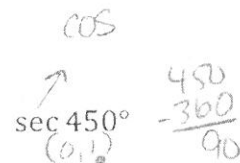 cos
sec 450°
(0,1)
450
-360
90